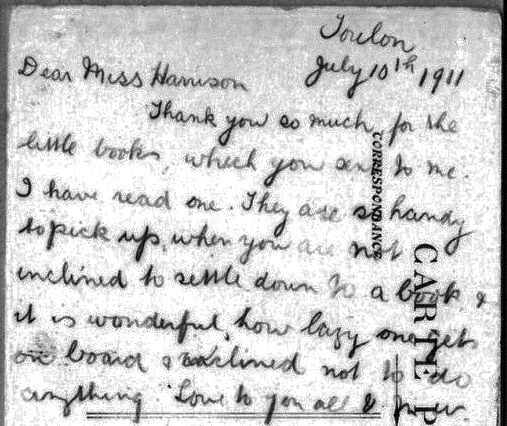 Toulon
July 10th 1911
Dear Miss Harrison
Thank you so much, for the
little books, which you sent to me.
I have read one. They are so handy
to pick up, when you are not
inclined to settle down to a book &
it is wonderful, how lazy one gets
on board & inclined not to do
anything. Love to you all &
CORRESPONDANCE
CARTE P